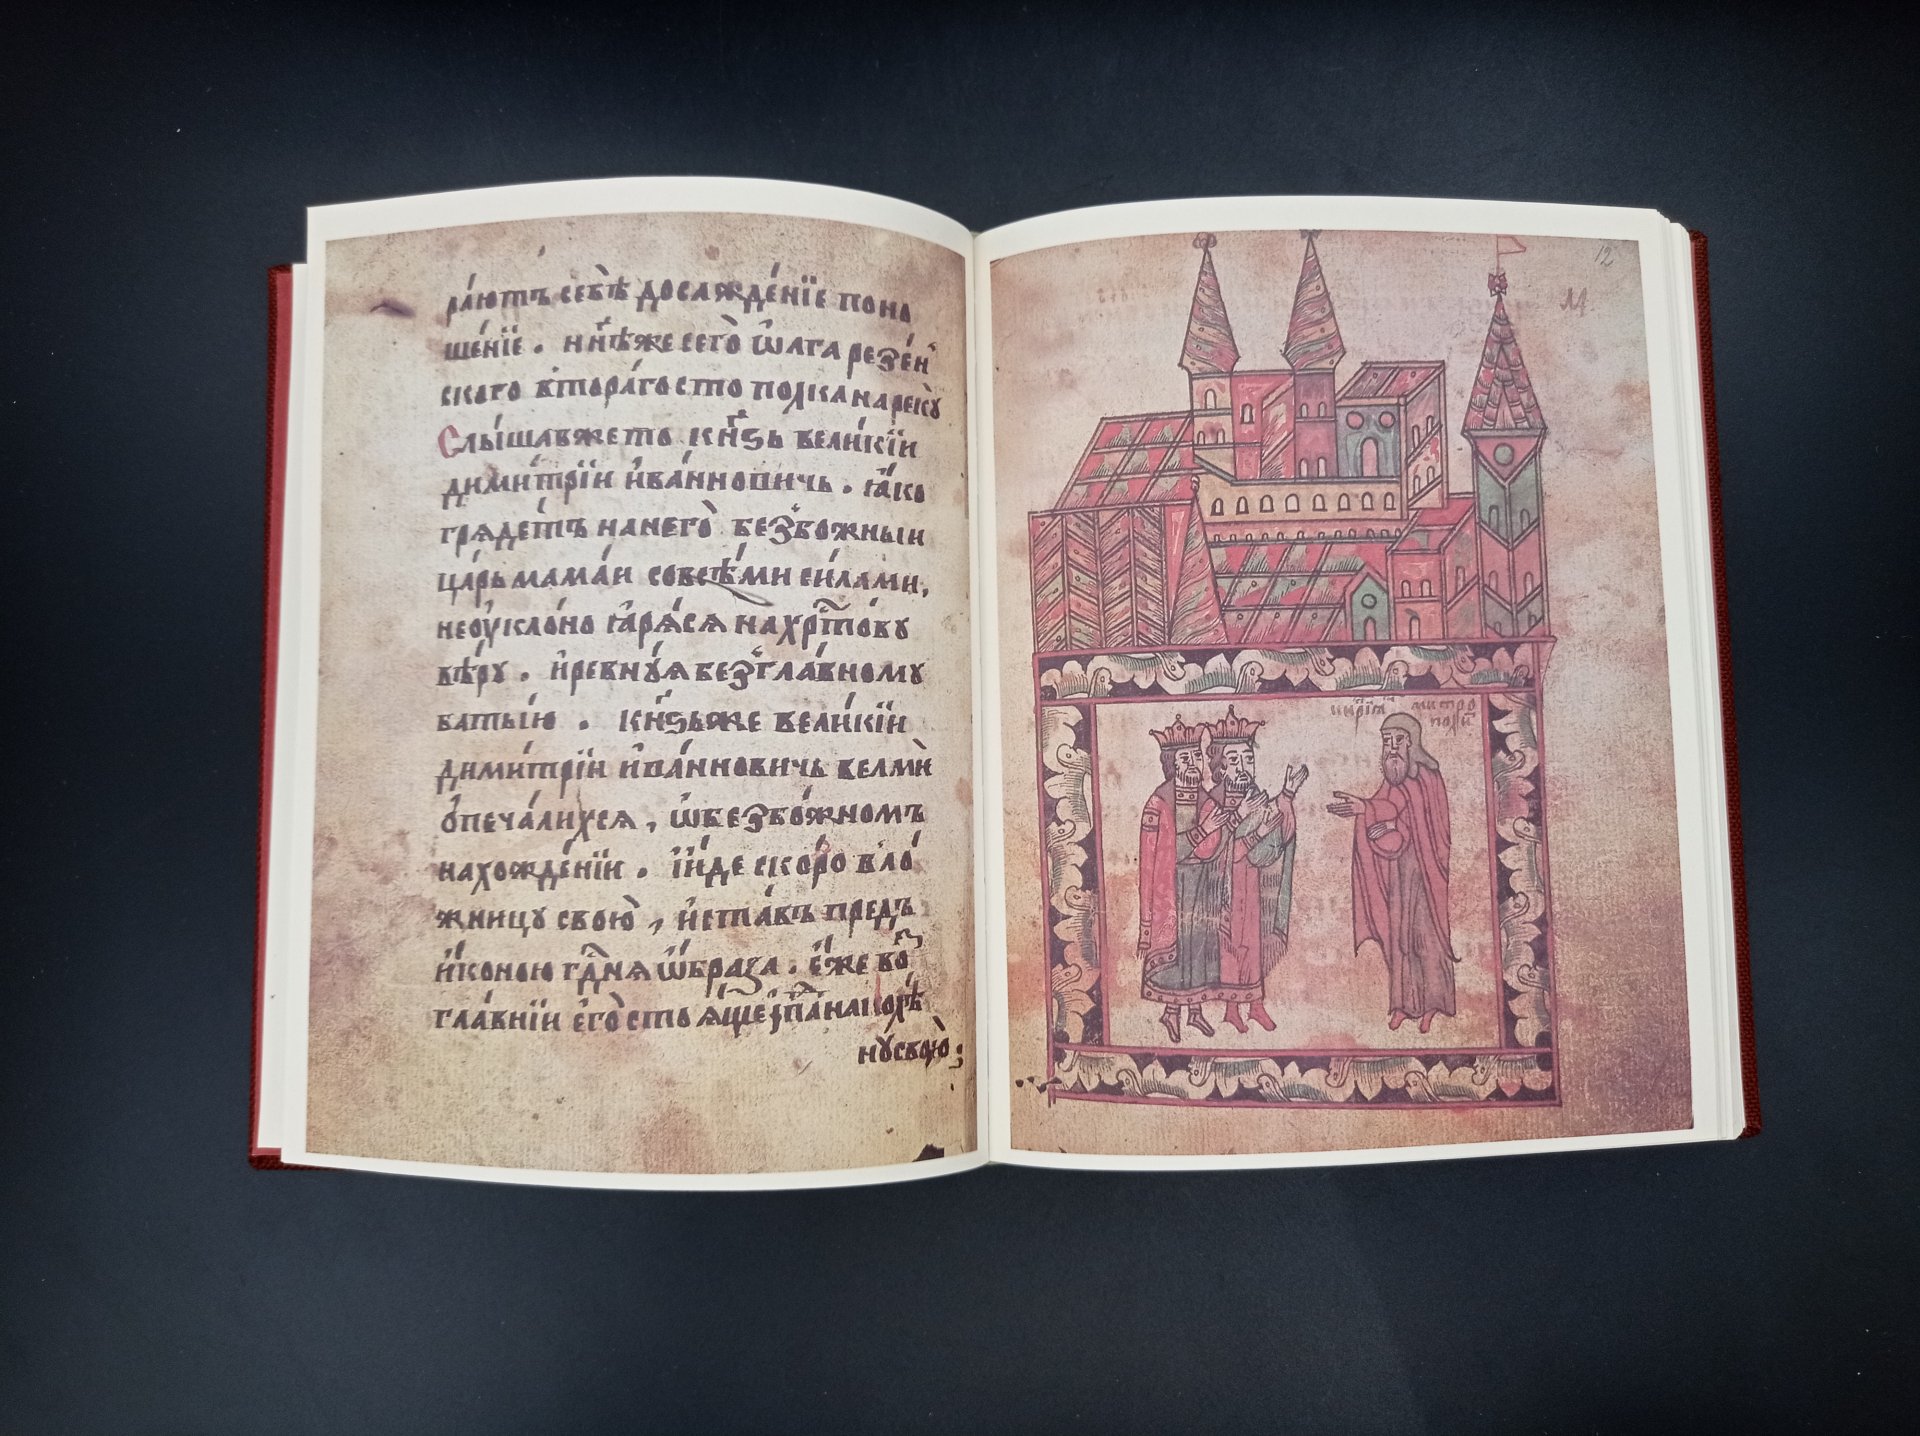 раютъ себѣ досажденїе поно
шенїе. н҃нѣже сего ѡлга резен
ского втораго стополка нарекꙋ
Слышавжето кн҃зь великїи
димитрїи ивановичь. ꙗко
грядетъ нанего безбожныи
царь мамаи совсѣми силами,
неꙋклоно ꙗряся нахрт҃ову
вѣру. иревнуя безглавному
батыю. кн҃зьже великїи
димитрїи ивановичь велми
опечалихся, ѡбезбожномъ
нахожденїи. иide скоро вло
жницу свою, иставъ предъ
иконою гд҃ня ѡбраза. еже во
главїи его стоящеі, падь на колѣ
ну свою:
12
митро
поли